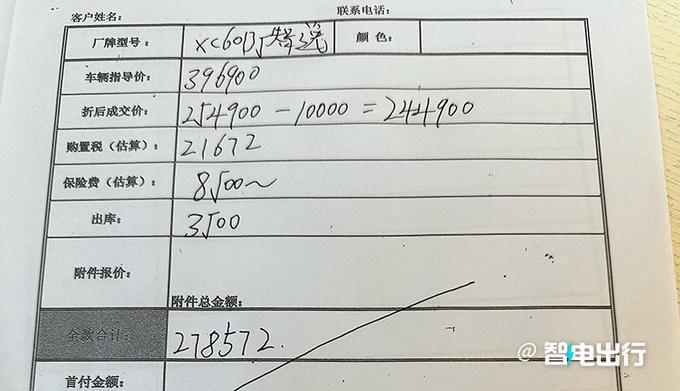 客户姓名: 联系电话:
厂牌型号: XC60 B5 智逸 颜色:
车辆指导价: 396900
折后成交价: 254900 - 10000 = 244900
购置税(估算): 21672
保险费(估算): 8500~
出库: 3500
附件报价:
附件总金额:
全款合计: 278572.
首付金额:
@智电出行